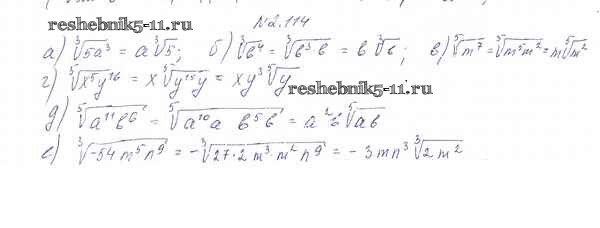 reshebnik5-11.ru
№2.114
а) ∛(5a³) = a∛5; б) ∛(b⁴) = ∛(b³·b) = b∛b; в) ⁵√(m⁷) = ⁵√(m⁵m²) = m⁵√(m²)
г) ⁵√(x⁵y¹⁶) = x ⁵√(y¹⁵y) = xy³ ⁵√y
reshebnik5-11.ru
д) ⁵√(a¹¹b⁶) = ⁵√(a¹⁰a b⁵b) = a²b ⁵√(ab)
е) ∛(-54m⁵n⁹) = -∛(27·2m³·m²n⁹) = -3mn³ ∛(2m²)